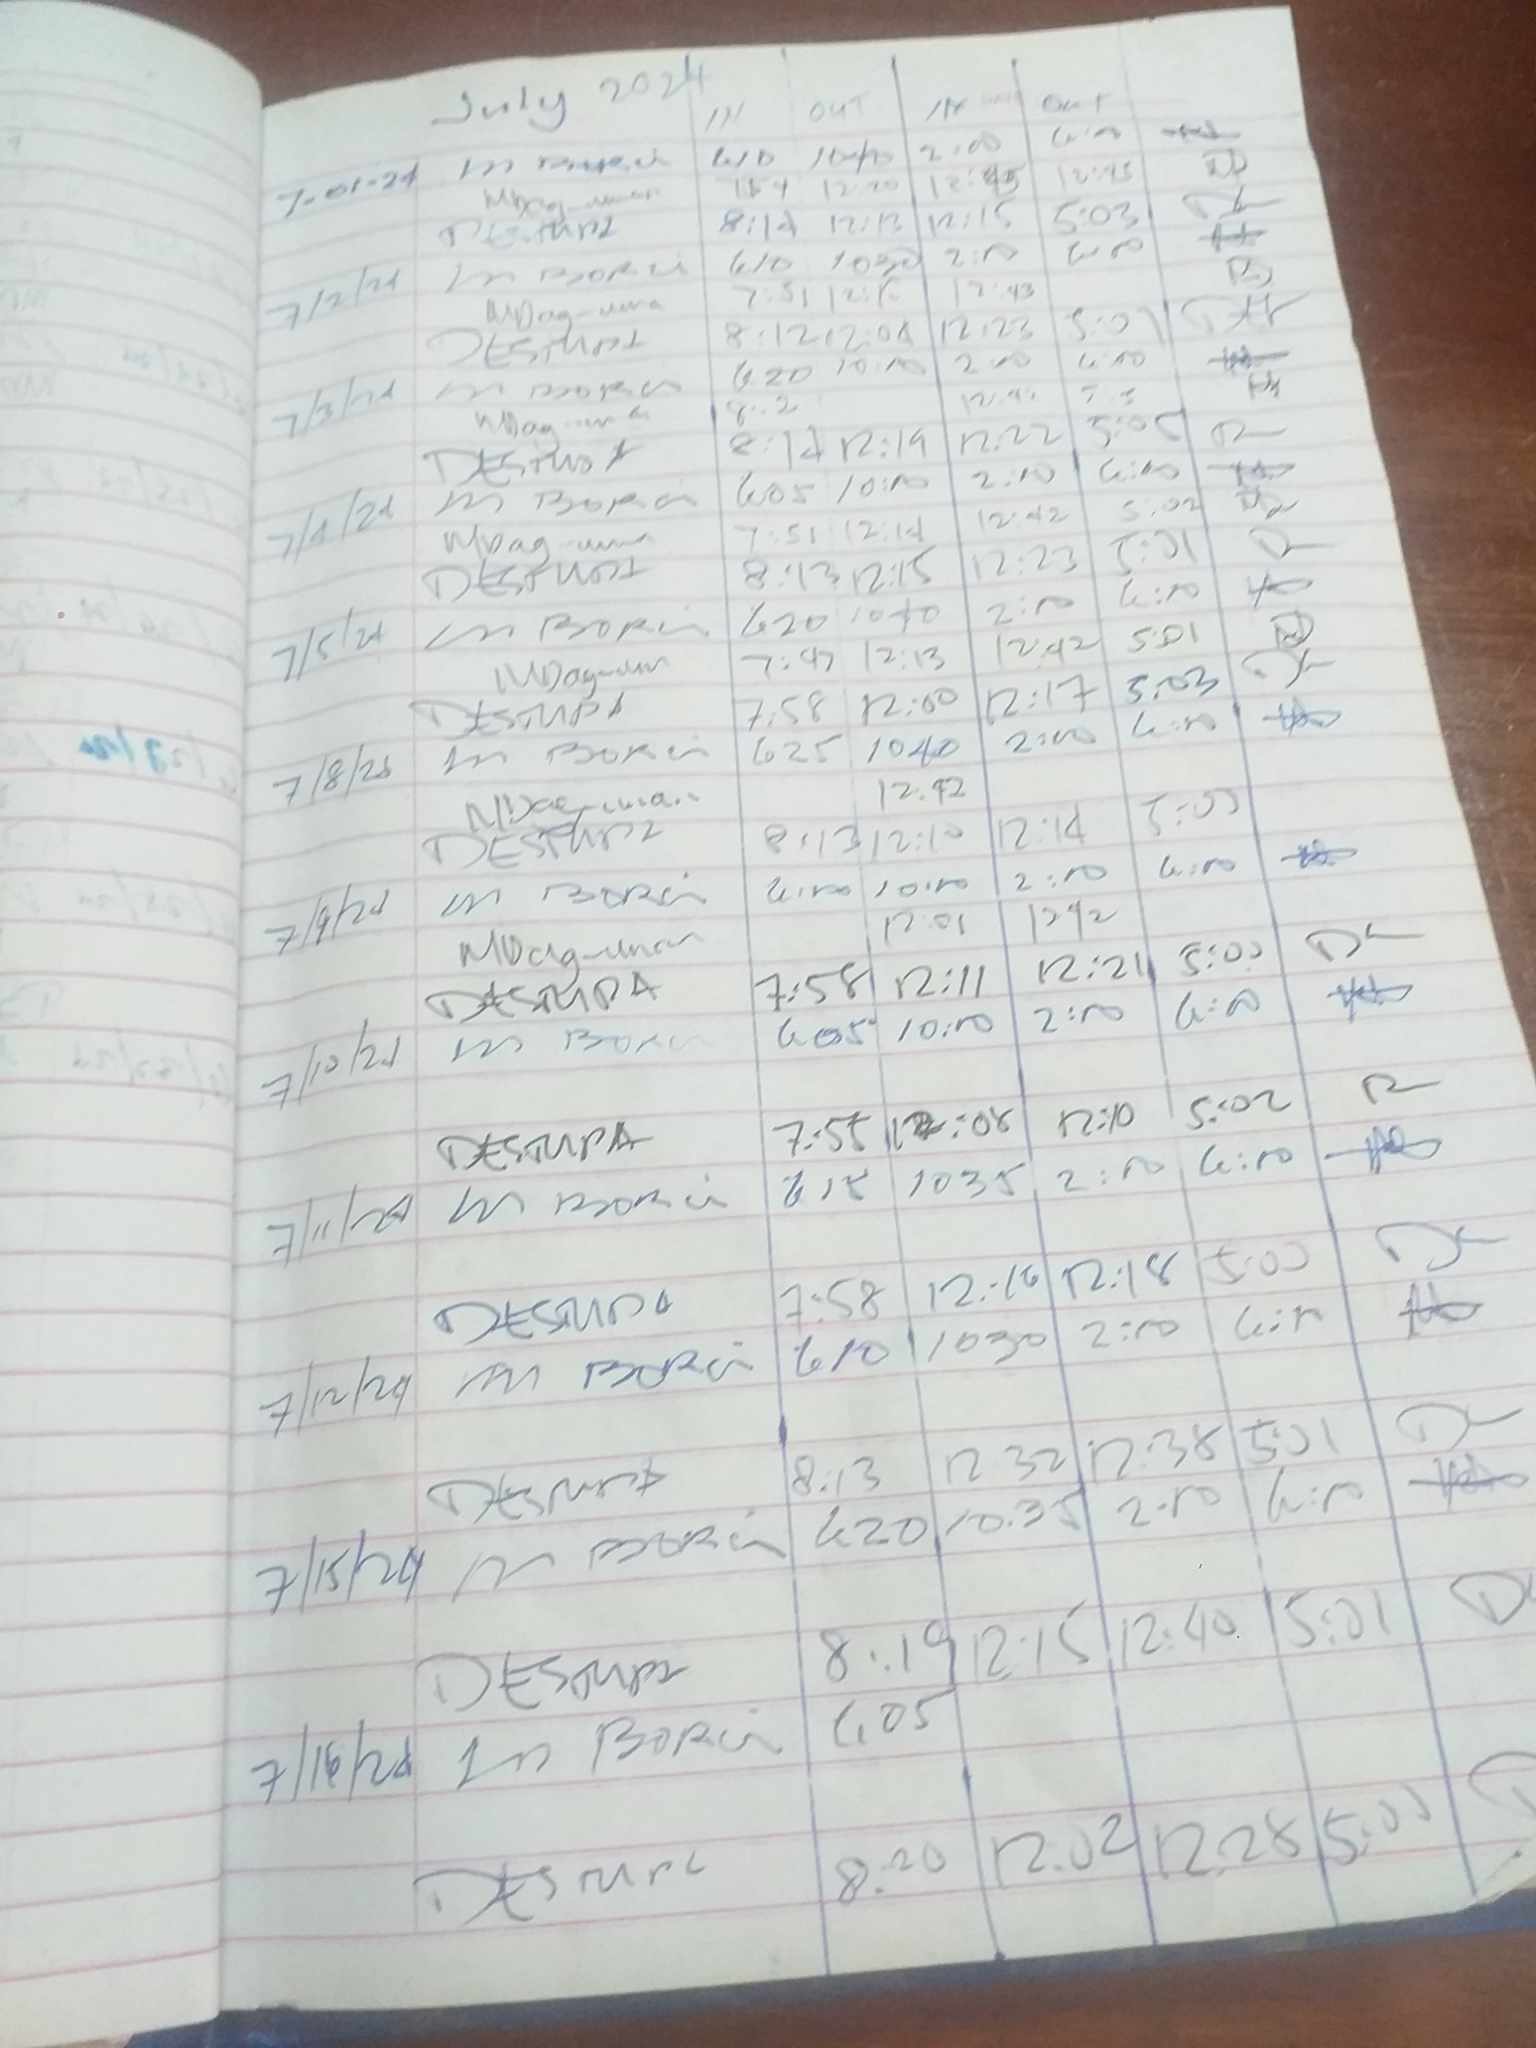 July 2024
IN OUT IN OUT
7-01-24 M Borci 610 1040 2:00 6:00
MDag-uman 7:54 12:20 12:45
DESTUPA 8:14 12:13 12:15 5:03
7/2/24 M Borci 610 1030 2:00 6:00
MDag-uman 7:51 12:43
DESTUPA 8:12 12:08 12:23 5:01
7/3/24 M Borci 620 10:00 2:00 6:00
MDag-uman
DESTUPA 8:14 12:19 12:22 5:05
7/4/24 M Borci 605 10:00 2:00 6:00
MDag-uman 7:51 12:14 12:42 5:02
DESTUPA 8:13 12:15 12:23 5:01
7/5/24 M Borci 620 1040 2:00 6:00
MDag-uman 7:47 12:13 12:42 5:01
DESTUPA 7:58 12:00 12:17 5:03
7/8/24 M Borci 625 1040 2:00 6:00
MDag-uman 12:42
DESTUPA 8:13 12:10 12:14 5:00
7/9/24 M Borci 6:00 10:00 2:00 6:00
MDag-uman 12:01 1242
DESTUPA 7:58 12:11 12:21 5:00
7/10/24 M Borci 605 10:00 2:00 6:00
DESTUPA 7:55 12:08 12:10 5:02
7/11/24 M Borci 615 1035 2:00 6:00
DESTUPA 7:58 12:16 12:18 5:00
7/12/24 M Borci 610 1030 2:00 6:00
DESTUPA 8:13 12 32 12:38 5:01
7/15/24 M Borci 620 10:35 2:00 6:00
DESTUPA 8:19 12:15 12:40 5:01
7/16/24 M Borci 605
DESTUPA 8:20 12:02 12:28 5:00